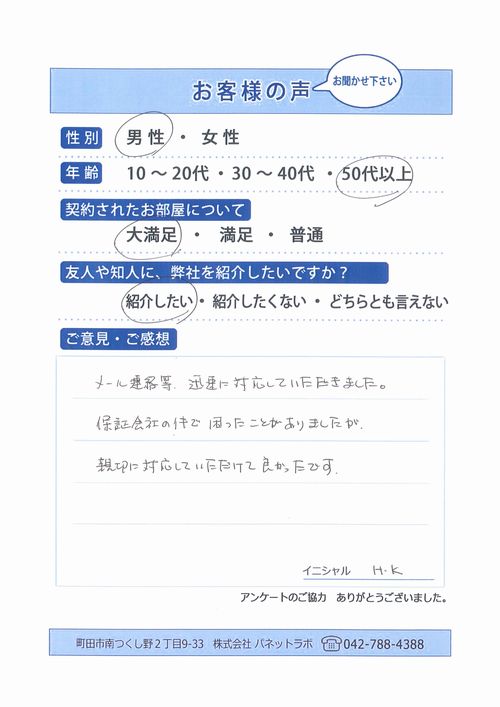 お聞かせ下さい
お客様の声
性別 男性・女性
年齢 10～20代・30～40代・50代以上
契約されたお部屋について
大満足・満足・普通
友人や知人に、弊社を紹介したいですか？
紹介したい・紹介したくない・どちらとも言えない
ご意見・ご感想
メール連絡等、迅速に対応していただきました。
保証会社の件で困ったことがありましたが、
親切に対応していただけて良かったです。
イニシャル H.K
アンケートのご協力 ありがとうございました。
町田市南つくし野2丁目9-33 株式会社 パネットラボ ☎042-788-4388